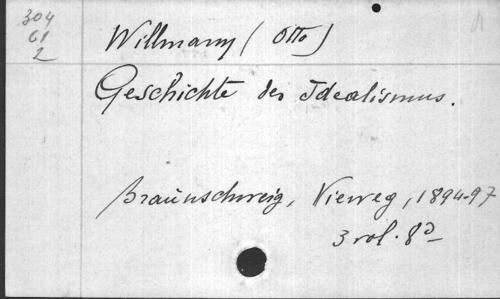 304
61
2
Willmann (Otto)
Geschichte des Idealismus.
Braünschweig, Vieweg, 1894-97
3 vol. 8º